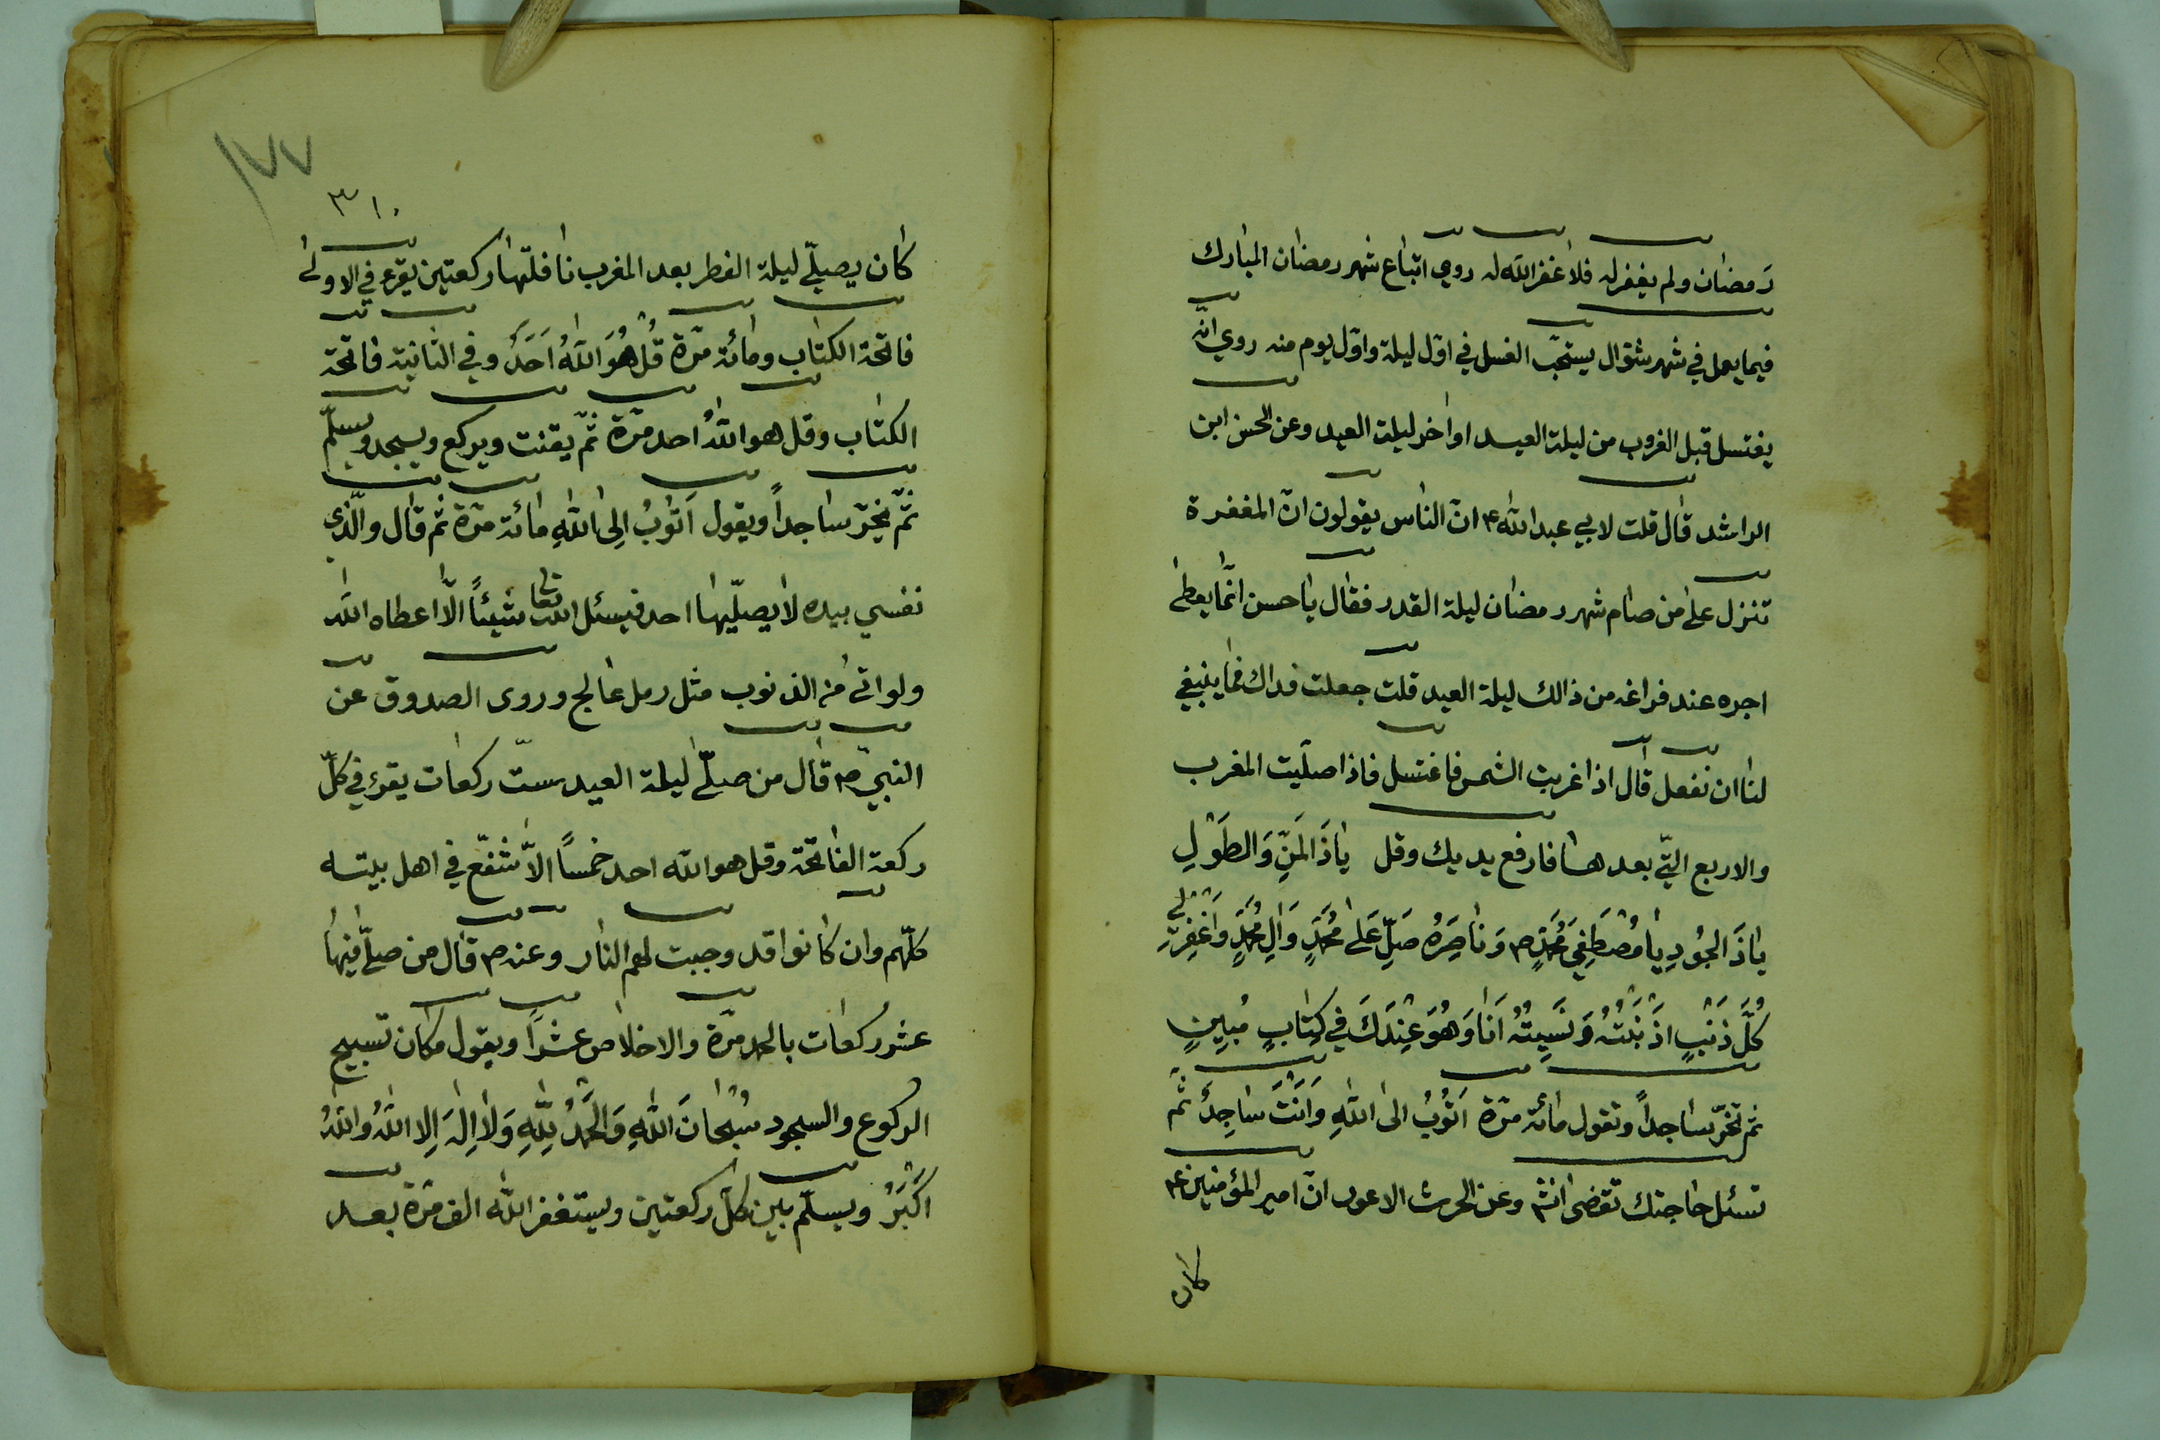 رَمضان ولم يغفر له فلا غفر الله له روي اتباع شهر رمضان المبارك
فيما يعمل في شهر شوّال يستحبّ الغسل في اوّل ليلة واوّل يوم منه روي انّه
يغتسل قبل الغروب من ليلة العيد او اخر ليلة العيد وعن الحسن ابن
الراشد قال قلت لابي عبد الله ع انّ الناس يقولون انّ المغفرة
تنزل على من صام شهر رمضان ليلة القدر فقال يا حسن انّما يعطى
اجره عند فراغه من ذالك ليلة العيد قلت جعلت فداك فما ينبغي
لنا ان نفعل قال اذا غربت الشمس فاغتسل فاذا صلّيت المغرب
والاربع الّتي بعدها فارفع يديك وقل يا ذَا المَنِّ وَالطَوْلِ
يا ذَا الجُودِ يا مُصْطَفِيَ مُحَمَّدٍ ص وَناصِرَهُ صَلِّ عَلى مُحَمَّدٍ وَالِ مُحَمَّدٍ وَاغْفِرْ لِي
كُلَّ ذَنْبٍ اذْنَبْتُهُ وَنَسِيتُهُ اَنَا وَهُوَ عِنْدَكَ في كِتابٍ مُبِينٍ
ثم تخرّ ساجداً وتقول مائة مرّة اَتُوبُ الى اللهِ وَاَنْتَ ساجِدٌ ثم
تسئل حاجتك تقضى انش وعن الحرث الاعور انّ امير المؤمنين ع
كان
١٧٧
٣١٠
كان يصلّي ليلة الفطر بعد المغرب نافلتها ركعتين يقرء في الاولى
فاتحة الكتاب ومائة مرّة قُلْ هُوَ اللهُ اَحَدٌ وفي الثانية فاتحة
الكتاب وقل هو اللهُ احد مرّة ثمّ يقنت ويركع ويسجد ويسلّم
ثمّ يخرّ ساجداً ويقول اَتُوبُ اِلى اللهِ مائة مرّة ثم قال والّذي
نفسي بيده لا يصلّيها احد فيسئل الله تعا شيئاً الّا اعطاه الله
ولو اتى من الذنوب مثل رمل عالج وروى الصدوق عن
النبيّ ص قال من صلّى ليلة العيد ستّ ركعات يقرء في كلّ
ركعة الفاتحة وقل هو الله احد خمساً الاّ شفّع في اهل بيته
كلّهم وان كانوا قد وجبت لهم النار وعنه ص قال من صلّى فيها
عشر ركعات بالحمد مرّة والاخلاص عشراً ويقول مكان تسبيح
الركوع والسجود سُبْحانَ اللهِ وَالحَمْدُ لِلّهِ وَلا اِلهَ اِلا اللهُ واللهُ
اَكْبَرُ ويسلّم بين كلّ ركعتين ويستغفر الله الف مرّة بعد